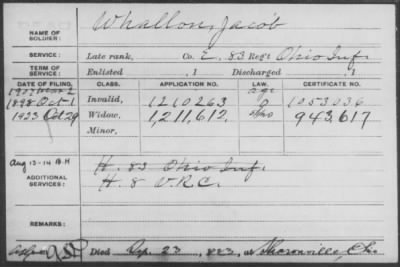 NAME OF SOLDIER: Whallon, Jacob
SERVICE: Late rank, Co. E, 83 Reg't Ohio Inf.
TERM OF SERVICE: Enlisted , 1 Discharged , 1
DATE OF FILING. CLASS. APPLICATION NO. LAW. CERTIFICATE NO.
1907 age
1898 Oct 1 Invalid, 1210263 1053036
1923 Oct 29 Widow, 1,211,612. 943,617
Minor,
Aug 13-14 B.H
ADDITIONAL SERVICES: H. 83 Ohio Inf.
H. 8 V.R.C.
REMARKS:
Died Sep. 23, 1923, at Sharonville, Ohio